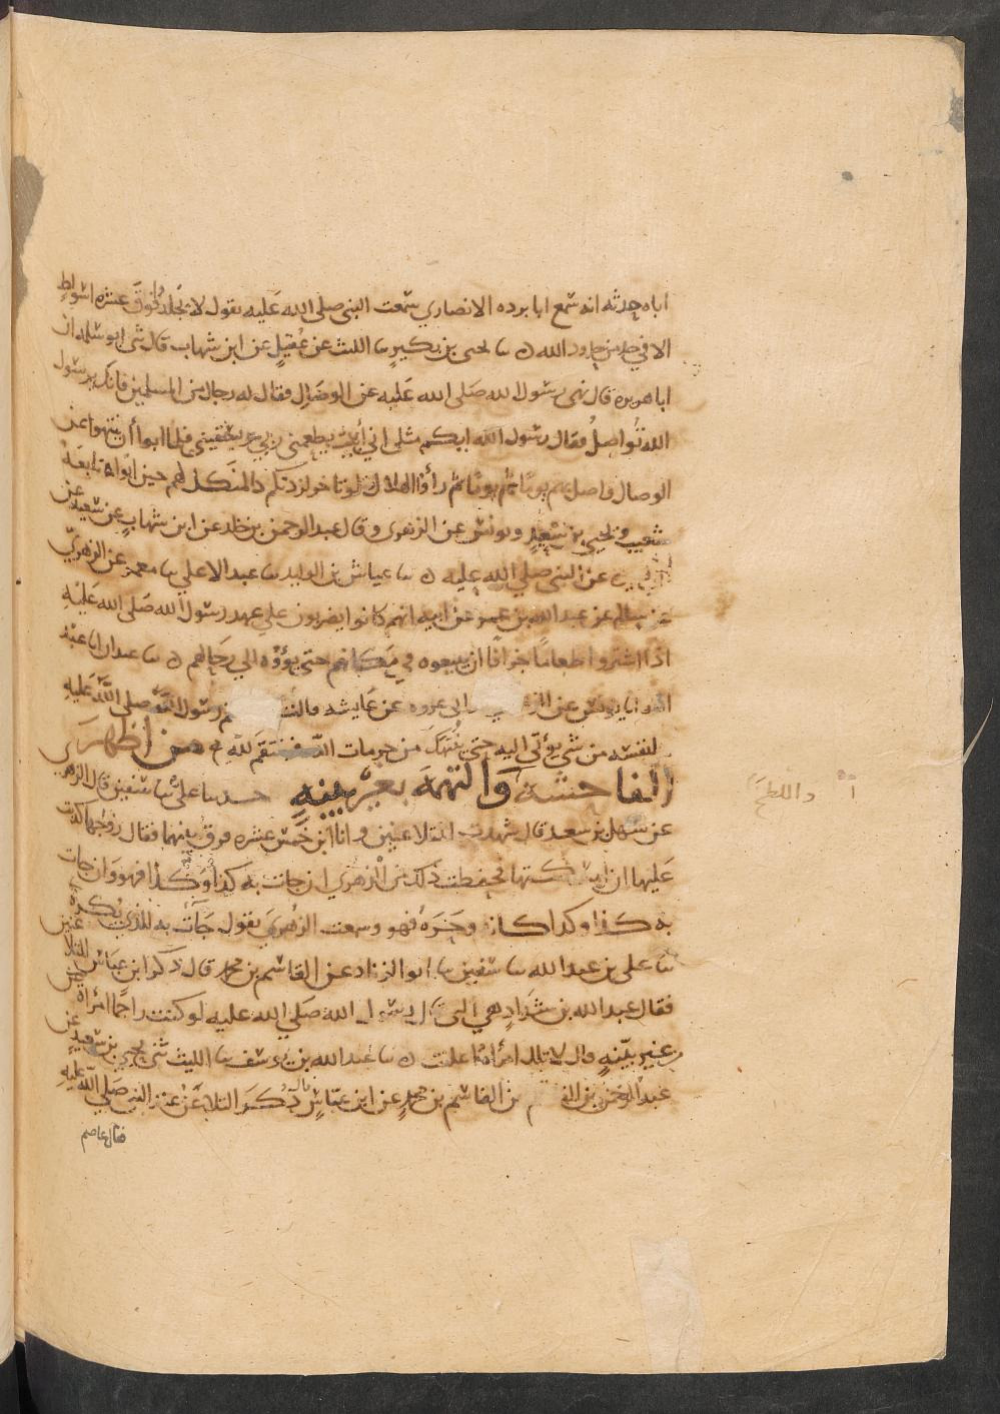 اباه حدثه انه سمع ابا برده الانصاري سمعت النبي صلى الله عليه يقول لا تجلدوا فوق عشره اسواط
الا في حد من حدود الله ٥ سا يحيى بن بكير سا الليث عن عقيل عن ابن شهاب قال ثنى ابو سلمه ان
ابا هريره قال نهى رسول الله صلى الله عليه عن الوصال فقال له رجال من المسلمين فانك يرسول
الله تواصل فقال رسول الله ايكم مثلى اني أبيت يطعمنى ربي ويسقيني فلما ابوا أن ينتهوا عن
الوصال واصل بهم يوما ثم يوما ثم رأوا الهلال فقال لو تاخر لزدتكم كالمنكل لهم حين ابوا ٥ تابعه
شعيب ويحيى بن سعيد ويونس عن الزهرى وقال عبد الرحمن بن خلد عن ابن شهاب عن سعيد عن
عن النبى صلي الله عليه ٥ سا عياش بن الوليد سا عبد الاعلي سا معمر عن الزهريّ
عن سالم عن عبد الله بن عمر عن ابيه انهم كانوا يضربون علي عهد رسول الله صَلى الله عَليهِ
اذا اشتروا طعامًا جزافًا ان يبيعوه في مكانهم حتى يؤوه الي رحالهم ٥ سا عبدان انا عبد
الله انا يونس عن عروه عن عايشه قالت رسول الله صلى الله عَليهِ
لنفسه من شي يؤتى اليه حتى ينتهك من حرمات الله فينتقم لله ٥ من أظهرَ
الفاحشة والتهمَهَ بغير بينةٍ سا علىّ سا سفين قال الزهري
عن سهل بن سعد قال شهدت المتلاعنين وانا ابن خمس عشره فرق بينهما فقال زوجها كذبت
عَليها ان امسكتها فحفظت ذلك من الزهري ان جات به كذا وكذا فهو وَان جات
به كذا وكذا كانه وحَرَهُ فهو وسمعت الزُهريّ يقول جَآت به للذي يُكرهُ
سا على بن عبد الله سا سفين سا ابو الزناد عن القاسم بن محمد قال ذكر ابن عباس المتلاعنين
فقال عبد الله بن شدادٍ هي التي قال رسول الله صَلي الله عليه لو كنت راجمًا امرأة عن
غير بيّنهٍ قال لا تلك امرأة اعلنت ٥ سا عبد الله بن يوسف سا الليث ثنى يحيى بن سعيدٍ عن
عبد الرحمن بن القاسم بن محمدٍ عن ابن عبّاسٍ ذُكرَ التلاعُن عند النبي صَلي الله عليهِ
فقال عاصم